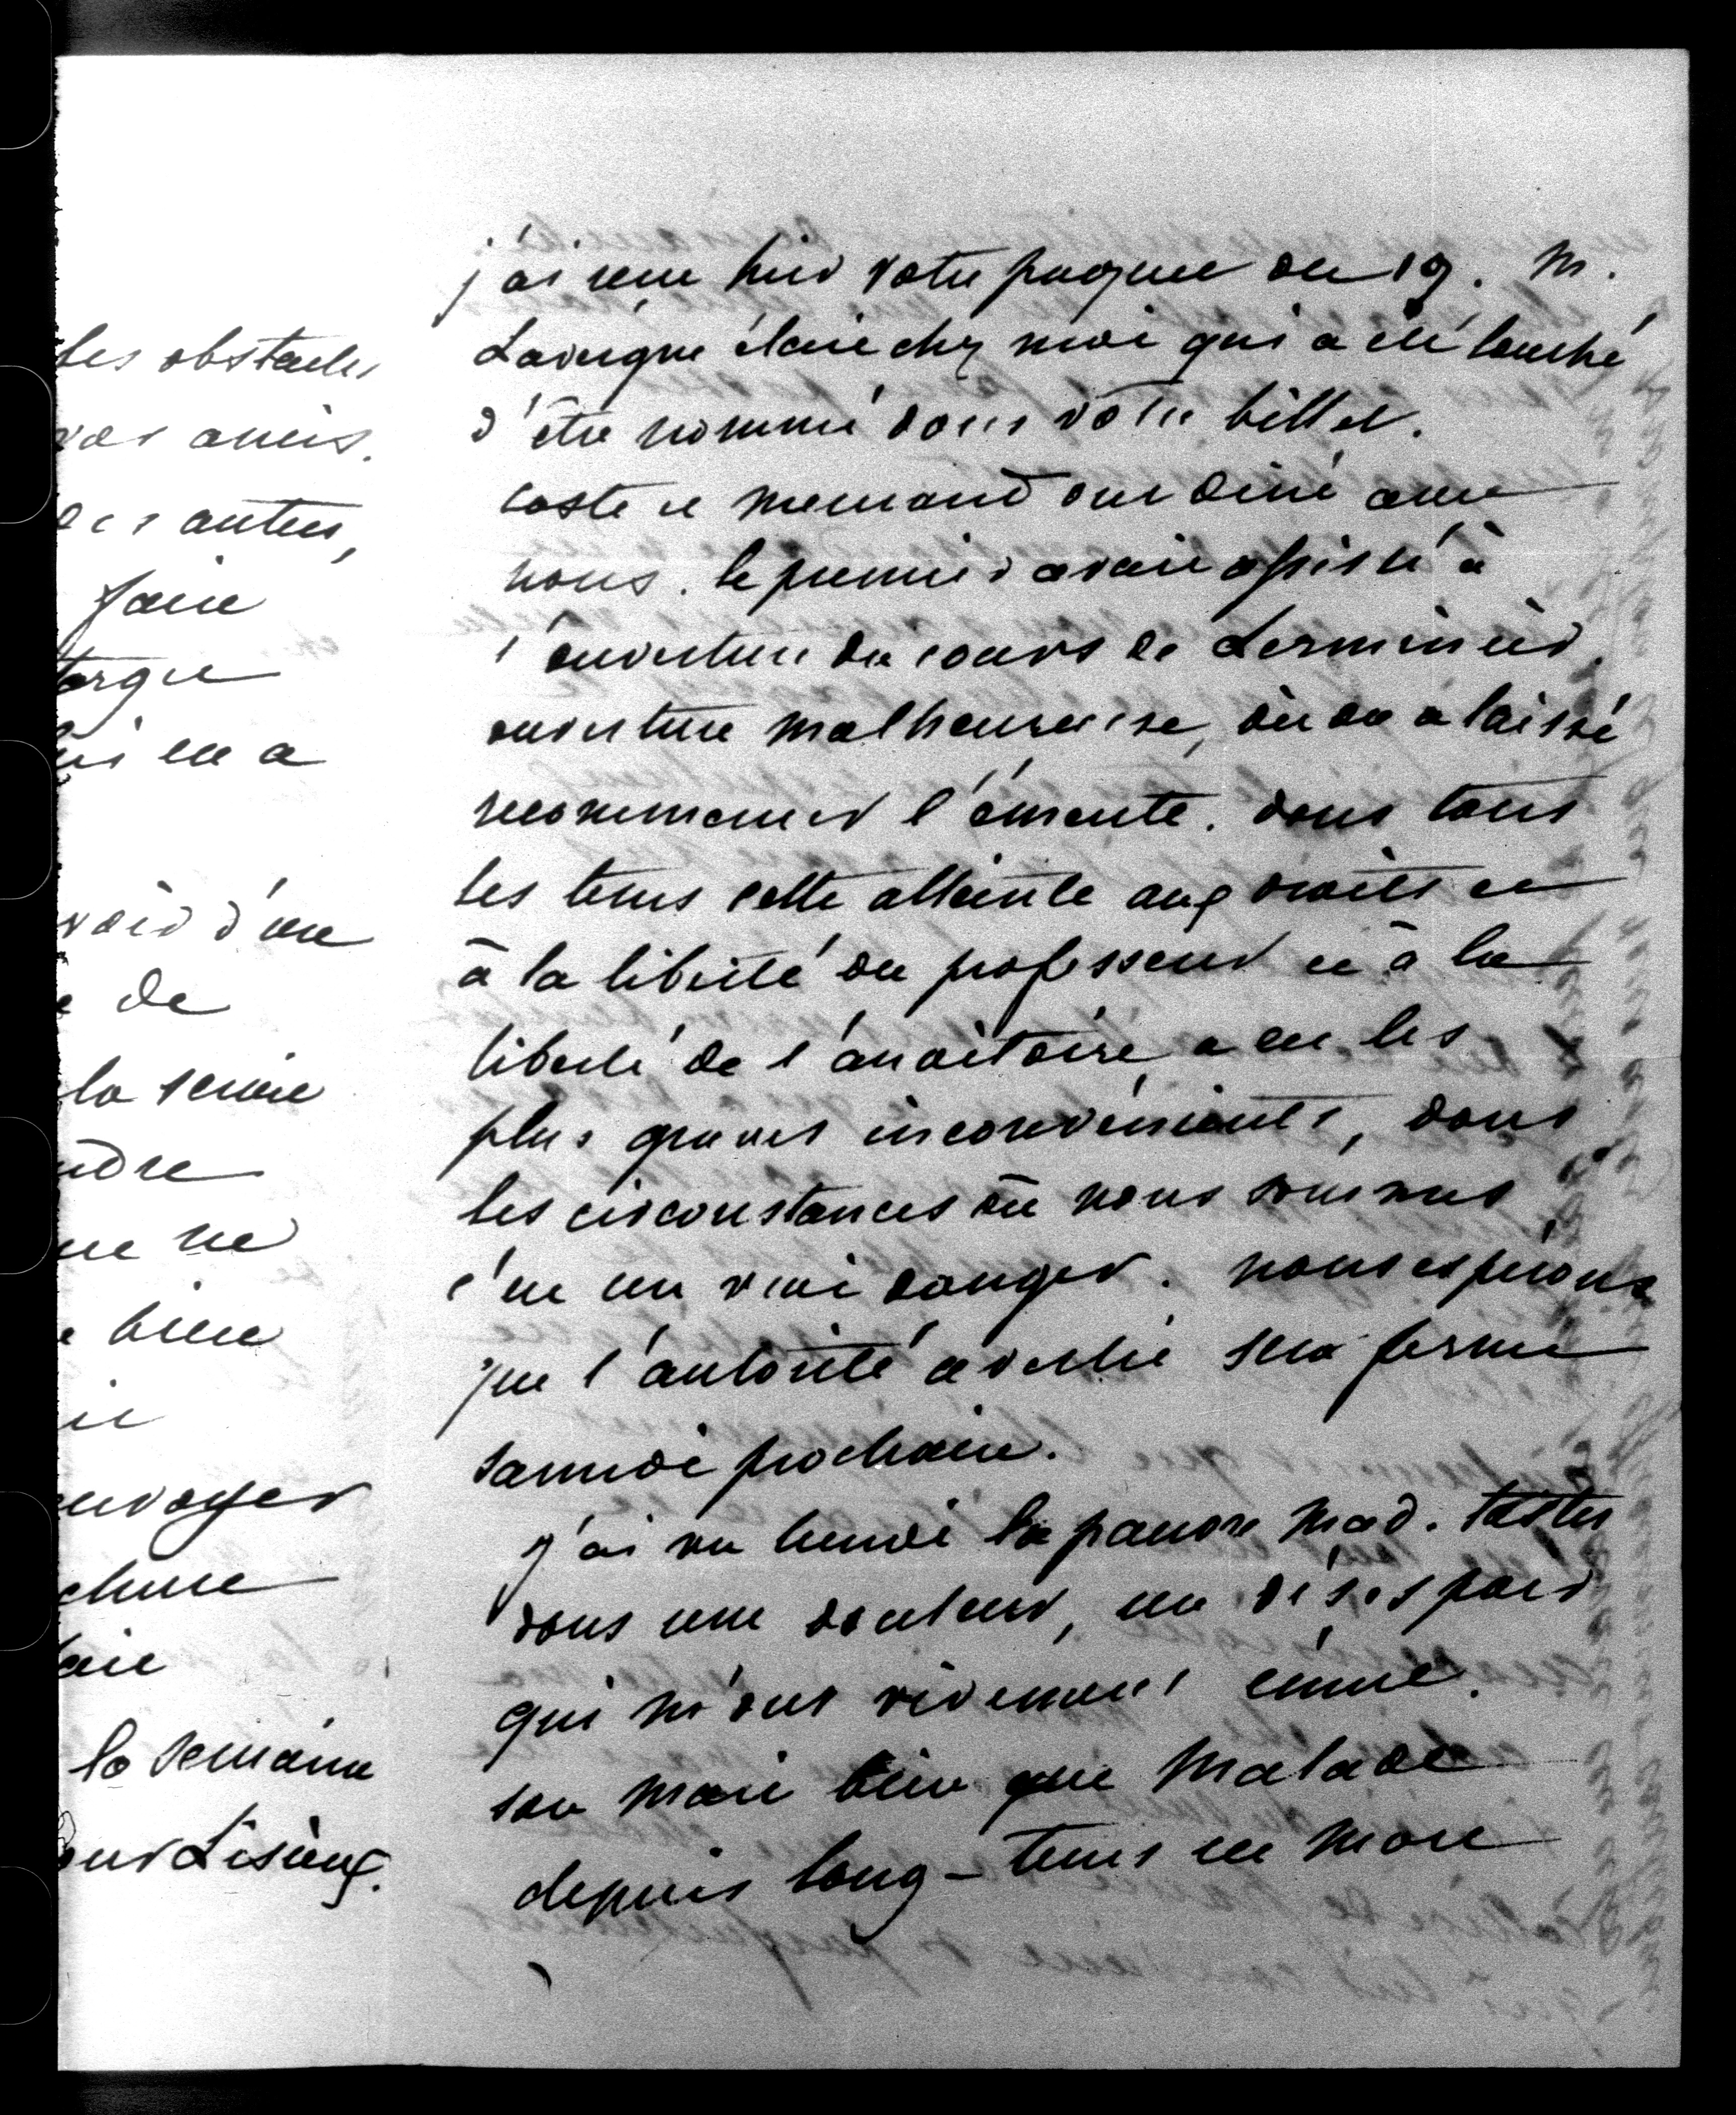 les obstacles
vos amis.
des autres,
faire
targue
lui en a
voir d'un
de
la scène
ndre
que ne
bien
envoyer
chure
la semaine
our Lisieux.
j'ai reçu hier votre paquet du 19. M.
Lavergne était chez moi qui a été touché
d'être nommé dans votre billet.
Coste et Mermand ont diné avec
nous. le premier avait assisté à
l'ouverture du cours de Lerminier.
ouverture malheureuse, où on a laissé
recommencer l'émeute. dans tous
les tems cette atteinte aux droits et
à la liberté du professeur et à la
liberté de l'auditoire, a eu les
plus graves inconvénients, dans
les circonstances où nous sommes
c'est un vrai danger. nous espérons
que l'autorité avertie sera ferme
samedi prochain.
j'ai vu lundi la pauvre Mad. Tastu
dans une douleur, un désespoir
qui m'ont vivement ému.
son mari bien que malade
depuis long-tems est mort